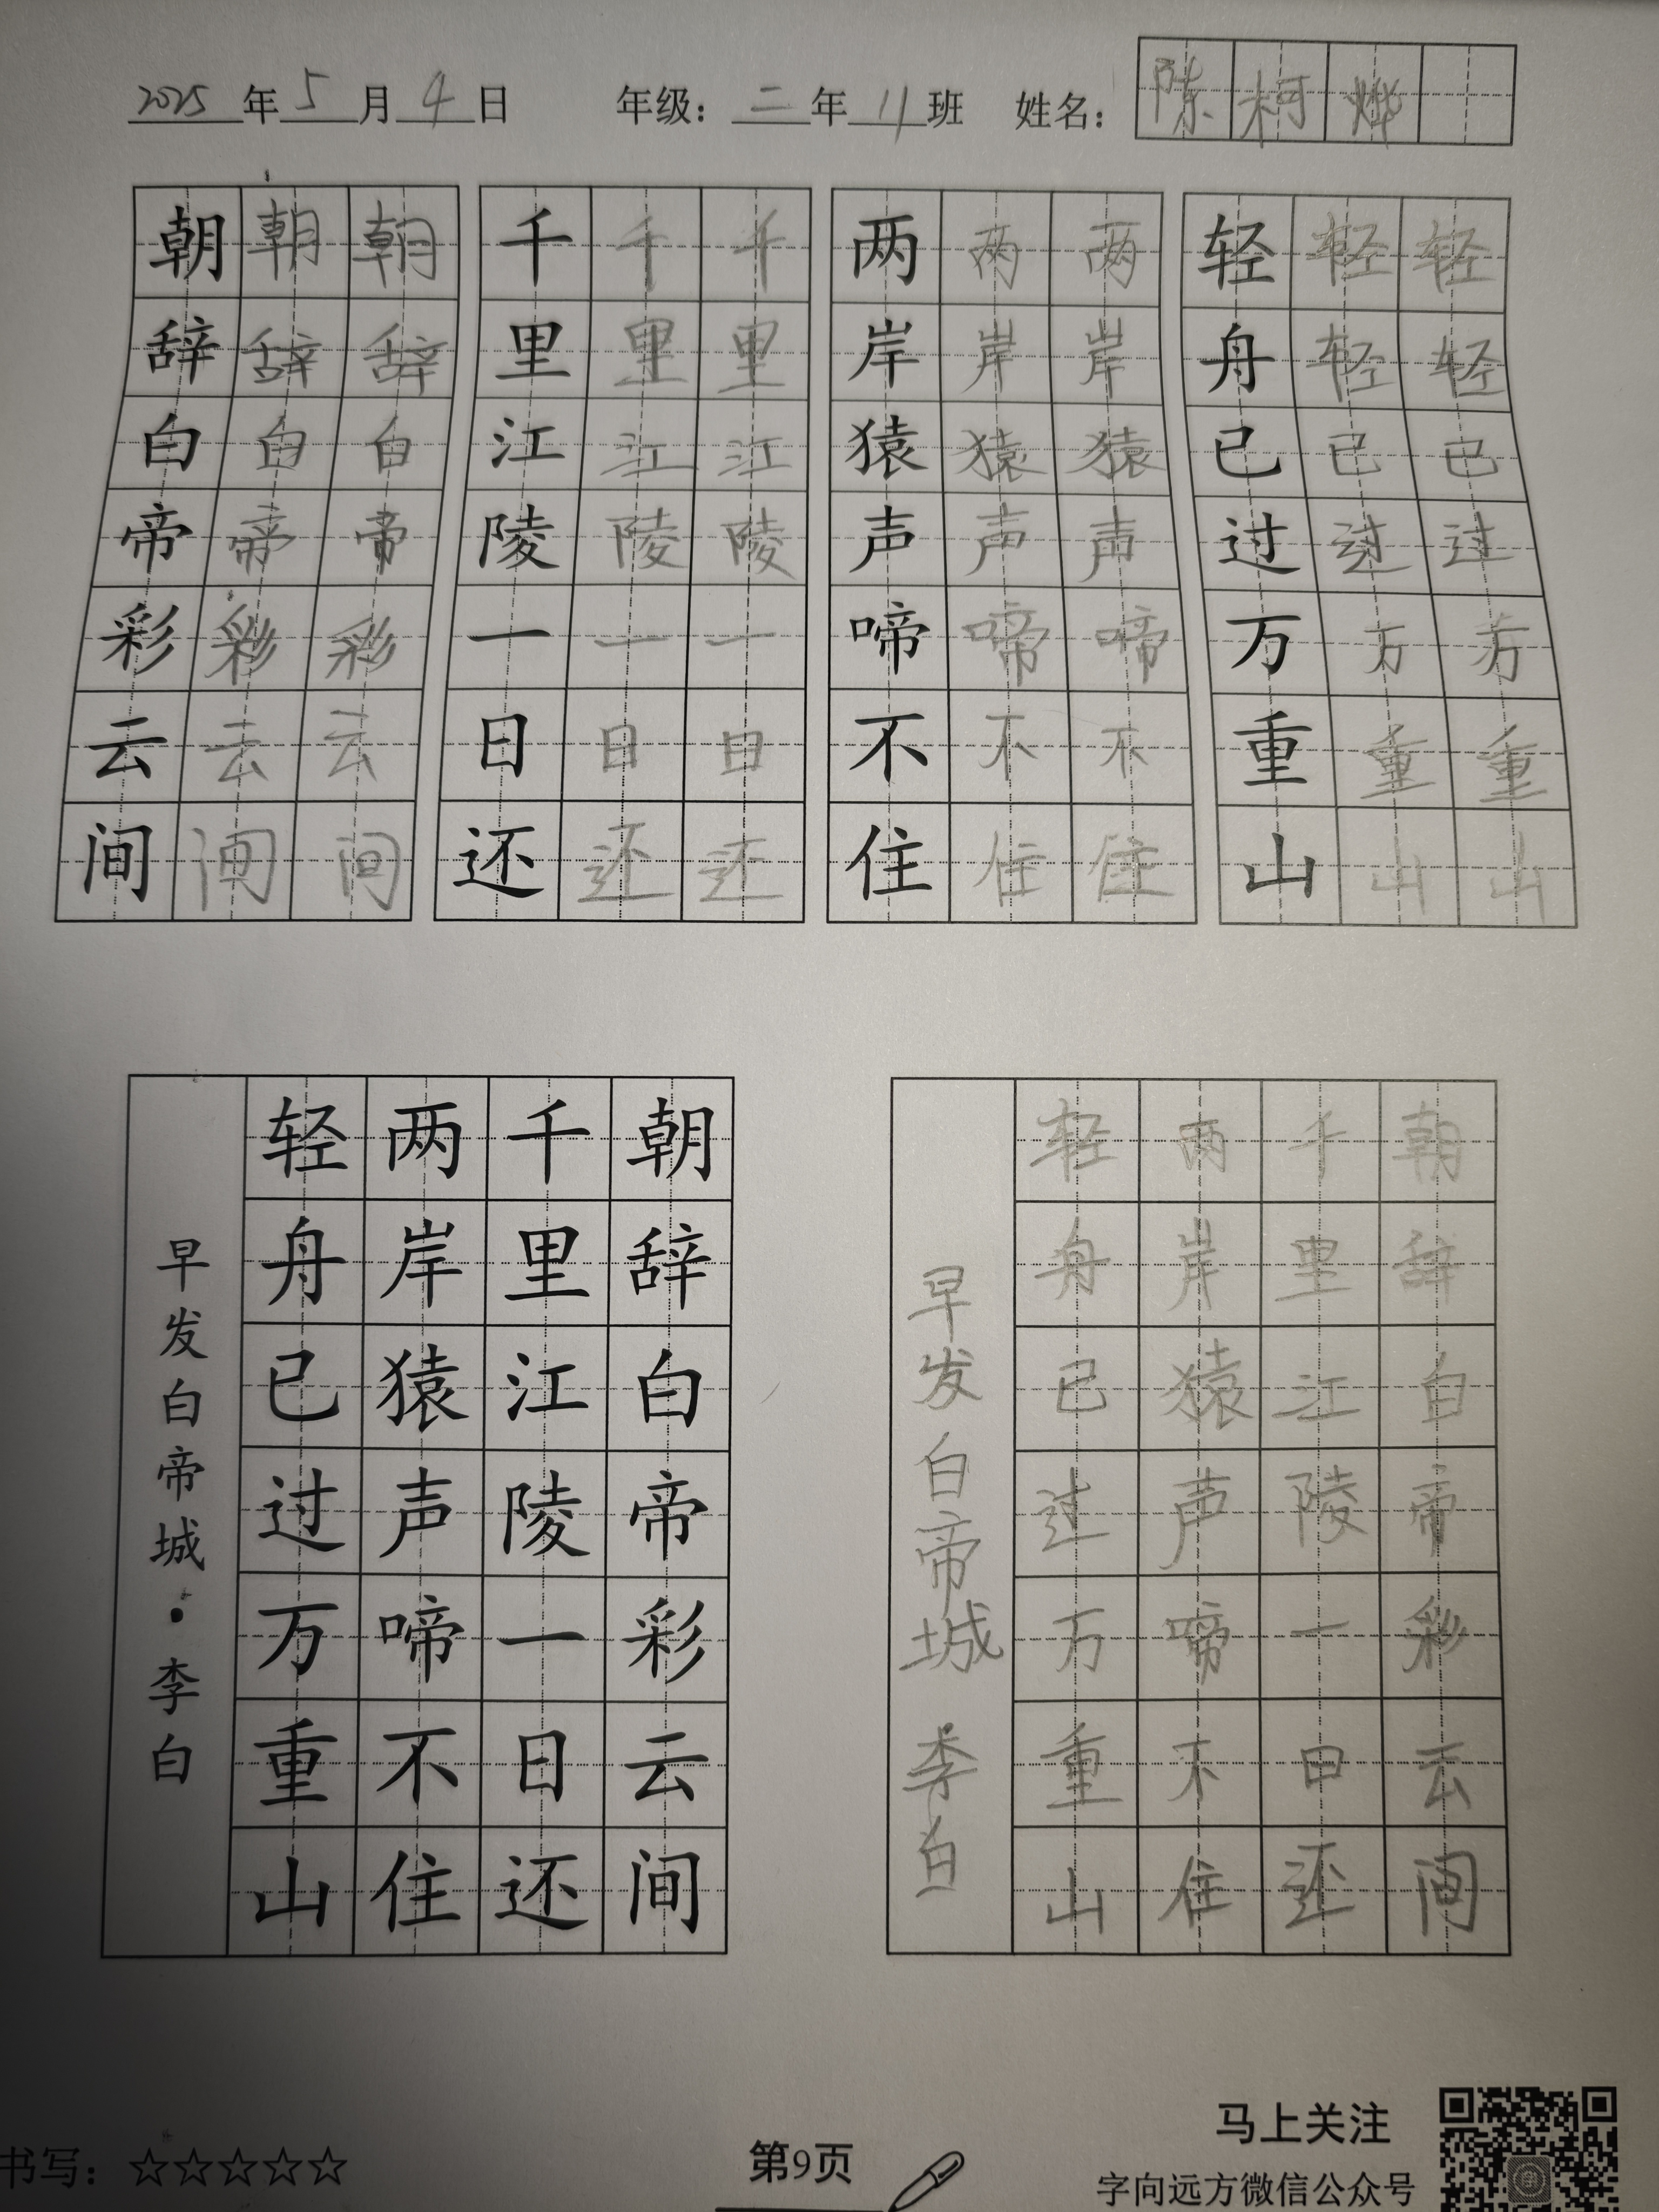 2025年5月4日 年级：二年11班 姓名：陈柯烨
朝朝朝
辞辞辞
白白白
帝帝帝
彩彩彩
云云云
间间间
千千千
里里里
江江江
陵陵陵
一一一
日日日
还还还
两两两
岸岸岸
猿猿猿
声声声
啼啼啼
不不不
住住住
轻轻轻
舟轻轻
已已已
过过过
万万万
重重重
山山山
朝辞白帝彩云间
千里江陵一日还
两岸猿声啼不住
轻舟已过万重山
早发白帝城·李白
朝辞白帝彩云间
千里江陵一日还
两岸猿声啼不住
轻舟已过万重山
早发白帝城 李白
书写：☆☆☆☆☆
第9页
马上关注
字向远方微信公众号